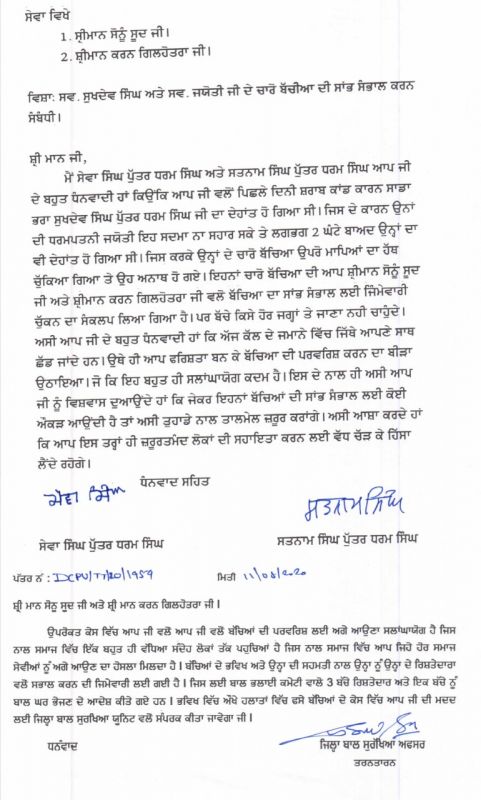 ਸੇਵਾ ਵਿਖੇ
1. ਸ਼੍ਰੀਮਾਨ ਸੋਨੂੰ ਸੂਦ ਜੀ।
2. ਸ਼੍ਰੀਮਾਨ ਕਰਨ ਗਿਲਹੋਤਰਾ ਜੀ।
ਵਿਸ਼ਾ: ਸਵ. ਸੁਖਦੇਵ ਸਿੰਘ ਅਤੇ ਸਵ. ਜਯੋਤੀ ਜੀ ਦੇ ਚਾਰੋ ਬੱਚੀਆ ਦੀ ਸਾਂਭ ਸੰਭਾਲ ਕਰਨ
ਸੰਬੰਧੀ।
ਸ਼੍ਰੀ ਮਾਨ ਜੀ,
ਮੈਂ ਸੇਵਾ ਸਿੰਘ ਪੁੱਤਰ ਧਰਮ ਸਿੰਘ ਅਤੇ ਸਤਨਾਮ ਸਿੰਘ ਪੁੱਤਰ ਧਰਮ ਸਿੰਘ ਆਪ ਜੀ
ਦੇ ਬਹੁਤ ਧੰਨਵਾਦੀ ਹਾਂ ਕਿਉਂਕਿ ਆਪ ਜੀ ਵਲੋਂ ਪਿਛਲੇ ਦਿਨੀ ਸ਼ਰਾਬ ਕਾਂਡ ਕਾਰਨ ਸਾਡਾ
ਭਰਾ ਸੁਖਦੇਵ ਸਿੰਘ ਪੁੱਤਰ ਧਰਮ ਸਿੰਘ ਜੀ ਦਾ ਦੇਹਾਂਤ ਹੋ ਗਿਆ ਸੀ। ਜਿਸ ਦੇ ਕਾਰਨ ਉਨਾਂ
ਦੀ ਧਰਮਪਤਨੀ ਜਯੋਤੀ ਇਹ ਸਦਮਾ ਨਾ ਸਹਾਰ ਸਕੇ ਤੇ ਲਗਭਗ 2 ਘੰਟੇ ਬਾਅਦ ਉਨ੍ਹਾਂ ਦਾ
ਵੀ ਦੇਹਾਂਤ ਹੋ ਗਿਆ ਸੀ। ਜਿਸ ਕਰਕੇ ਉਨ੍ਹਾਂ ਦੇ ਚਾਰੋ ਬੱਚਿਆ ਉਪਰੋ ਮਾਪਿਆਂ ਦਾ ਹੱਥ
ਚੁੱਕਿਆ ਗਿਆ ਤੇ ਉਹ ਅਨਾਥ ਹੋ ਗਏ। ਇਹਨਾਂ ਚਾਰੋ ਬੱਚਿਆ ਦੀ ਆਪ ਸ਼੍ਰੀਮਾਨ ਸੋਨੂੰ ਸੂਦ
ਜੀ ਅਤੇ ਸ਼੍ਰੀਮਾਨ ਕਰਨ ਗਿਲਹੋਤਰਾ ਜੀ ਵਲੋ ਬੱਚਿਆ ਦਾ ਸਾਂਭ ਸੰਭਾਲ ਲਈ ਜਿੰਮੇਵਾਰੀ
ਚੁੱਕਨ ਦਾ ਸੰਕਲਪ ਲਿਆ ਗਿਆ ਹੈ। ਪਰ ਬੱਚੇ ਕਿਸੇ ਹੋਰ ਜਗ੍ਹਾਂ ਤੇ ਜਾਣਾ ਨਹੀ ਚਾਹੁੰਦੇ।
ਅਸੀ ਆਪ ਜੀ ਦੇ ਬਹੁਤ ਧੰਨਵਾਦੀ ਹਾਂ ਕਿ ਅੱਜ ਕੱਲ ਦੇ ਜਮਾਨੇ ਵਿੱਚ ਜਿੱਥੇ ਆਪਣੇ ਸਾਥ
ਛੱਡ ਜਾਂਦੇ ਹਨ। ਉਥੇ ਹੀ ਆਪ ਫਰਿਸ਼ਤਾ ਬਨ ਕੇ ਬੱਚਿਆ ਦੀ ਪਰਵਰਿਸ਼ ਕਰਨ ਦਾ ਬੀੜਾ
ਉਠਾਇਆ। ਜੋ ਕਿ ਇਹ ਬਹੁਤ ਹੀ ਸਲਾਂਘਾਯੋਗ ਕਦਮ ਹੈ। ਇਸ ਦੇ ਨਾਲ ਹੀ ਅਸੀ ਆਪ
ਜੀ ਨੂੰ ਵਿਸ਼ਵਾਸ ਦੁਆਉਂਦੇ ਹਾਂ ਕਿ ਜੇਕਰ ਇਹਨਾਂ ਬੱਚਿਆਂ ਦੀ ਸਾਂਭ ਸੰਭਾਲ ਲਈ ਕੋਈ
ਔਕੜ ਆਉਂਦੀ ਹੈ ਤਾਂ ਅਸੀ ਤੁਹਾਡੇ ਨਾਲ ਤਾਲਮੇਲ ਜ਼ਰੂਰ ਕਰਾਂਗੇ। ਅਸੀ ਆਸ਼ਾ ਕਰਦੇ ਹਾਂ
ਕਿ ਆਪ ਇਸ ਤਰ੍ਹਾਂ ਹੀ ਜ਼ਰੂਰਤਮੰਦ ਲੋਕਾਂ ਦੀ ਸਹਾਇਤਾ ਕਰਨ ਲਈ ਵੱਧ ਚੱੜ ਕੇ ਹਿੱਸਾ
ਲੈਂਦੇ ਰਹੋਗੇ।
ਧੰਨਵਾਦ ਸਹਿਤ
ਸੇਵਾ ਸਿੰਘ
ਸਤਨਾਮ ਸਿੰਘ
ਸੇਵਾ ਸਿੰਘ ਪੁੱਤਰ ਧਰਮ ਸਿੰਘ
ਸਤਨਾਮ ਸਿੰਘ ਪੁੱਤਰ ਧਰਮ ਸਿੰਘ
ਪੱਤਰ ਨੰ : DCPU/TT/20/1959 ਮਿਤੀ 11/08/2020
ਸ਼੍ਰੀ ਮਾਨ ਸੋਨੂੰ ਸੂਦ ਜੀ ਅਤੇ ਸ਼੍ਰੀ ਮਾਨ ਕਰਨ ਗਿਲਹੋਤਰਾ ਜੀ ।
ਉਪਰੋਕਤ ਕੇਸ ਵਿੱਚ ਆਪ ਜੀ ਵਲੋਂ ਆਪ ਜੀ ਵਲੋਂ ਬੱਚਿਆਂ ਦੀ ਪਰਵਰਿਸ਼ ਲਈ ਅਗੇ ਆਉਣਾ ਸਲਾਂਘਾਯੋਗ ਹੈ ਜਿਸ
ਨਾਲ ਸਮਾਜ ਵਿੱਚ ਇੱਕ ਬਹੁਤ ਹੀ ਵੱਧਿਆ ਸੰਦੇਹ ਲੋਕਾਂ ਤੱਕ ਪਹੁਚਿਆ ਹੈ ਜਿਸ ਨਾਲ ਸਮਾਜ ਵਿੱਚ ਆਪ ਜਿਹੇ ਹੋਰ ਸਮਾਜ
ਸੇਵੀਆਂ ਨੂੰ ਅਗੇ ਆਉਣ ਦਾ ਹੋਸਲਾ ਮਿਲਦਾ ਹੈ । ਬੱਚਿਆਂ ਦੇ ਭਵਿਖ ਅਤੇ ਉਨ੍ਹਾ ਦੀ ਸਹਮਤੀ ਨਾਲ ਉਨ੍ਹਾ ਨੂੰ ਉਨ੍ਹਾ ਦੇ ਰਿਸ਼ਤੇਦਾਰਾ
ਵਲੋਂ ਸਭਾਲ ਕਰਨ ਦੀ ਜਿਮੇਵਾਰੀ ਲਈ ਗਈ ਹੈ । ਜਿਸ ਲਈ ਬਾਲ ਭਲਾਈ ਕਮੇਟੀ ਵਾਲੋ 3 ਬੱਚੇ ਰਿਸ਼ਤੇਦਾਰ ਅਤੇ ਇਕ ਬੱਚੇ ਨੂੰ
ਬਾਲ ਘਰ ਭੇਜਣ ਦੇ ਆਦੇਸ਼ ਕੀਤੇ ਗਏ ਹਨ । ਭਵਿਖ ਵਿੱਚ ਔਖੇ ਹਲਾਤਾਂ ਵਿੱਚ ਫਸੇ ਬੱਚਿਆਂ ਦੇ ਕੇਸ ਵਿੱਚ ਆਪ ਜੀ ਦੀ ਮਦਦ
ਲਈ ਜ਼ਿਲ੍ਹਾ ਬਾਲ ਸੁਰਖਿਆ ਯੂਨਿਟ ਵਲੋਂ ਸੰਪਰਕ ਕੀਤਾ ਜਾਵੇਗਾ ਜੀ ।
ਧਨੰਵਾਦ
ਜ਼ਿਲ੍ਹਾ ਬਾਲ ਸੁਰੱਖਿਆ ਅਫਸਰ
ਤਰਨਤਾਰਨ